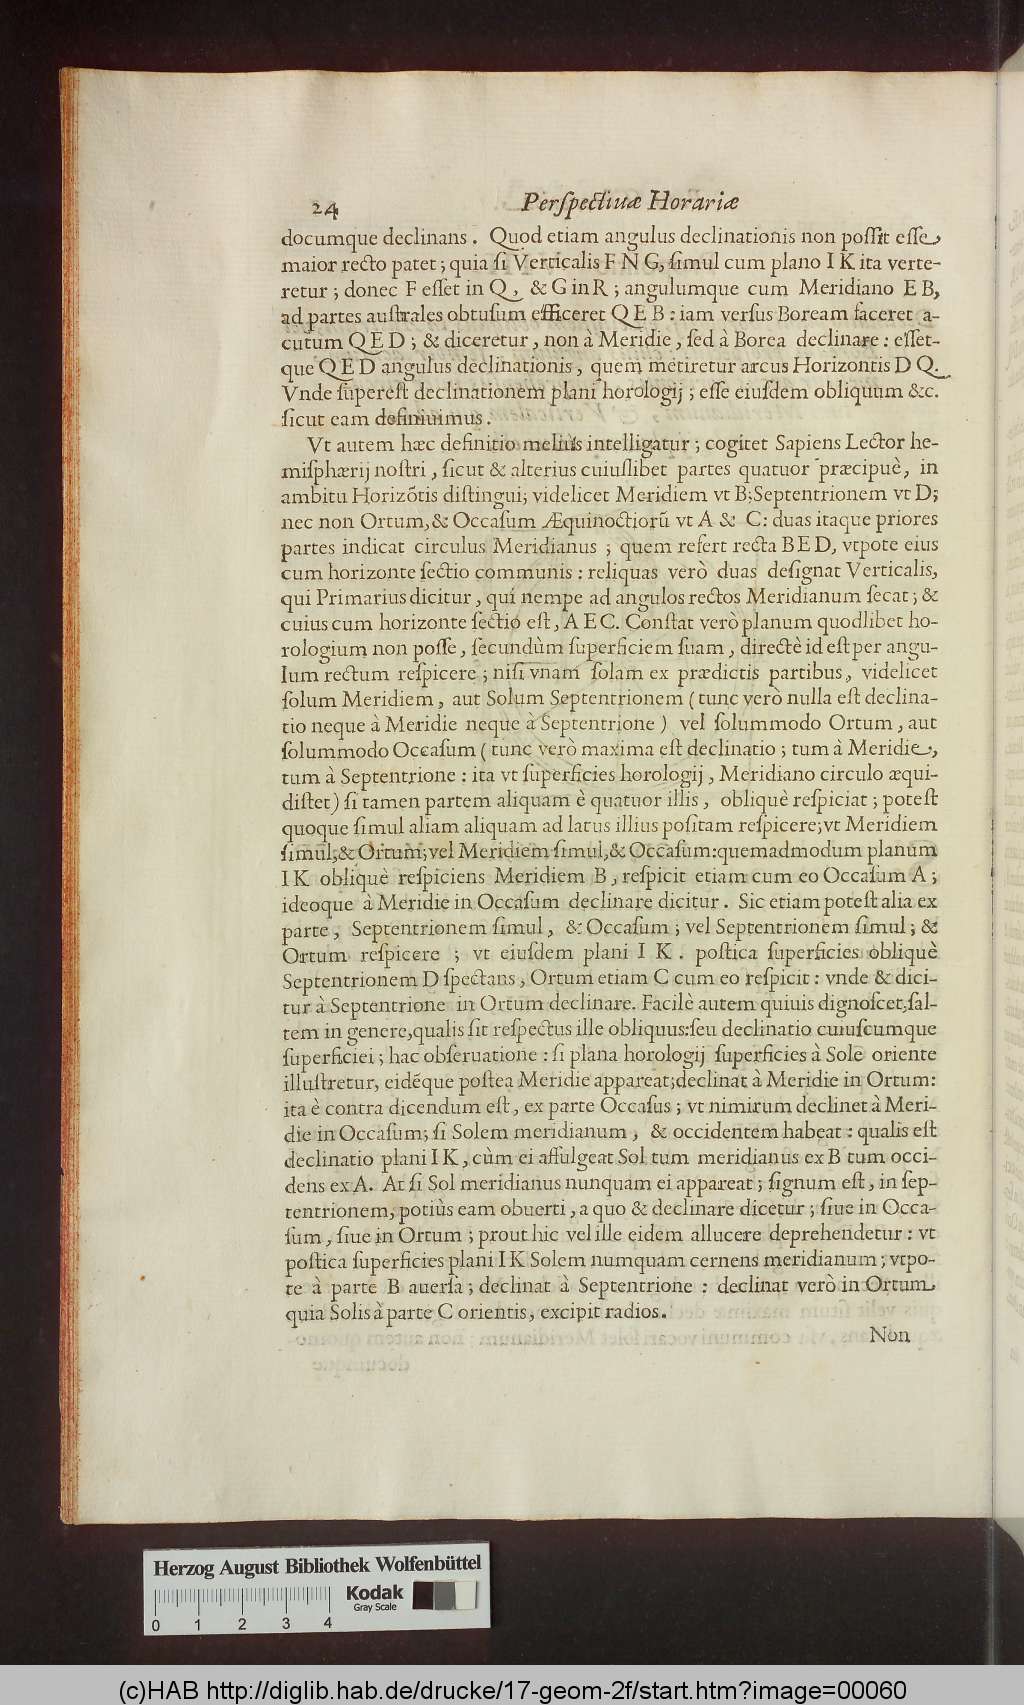 24 Perſpectiuæ Horariæ
documque declinans. Quod etiam angulus declinationis non poſſit eſſe,
maior recto patet; quia ſi Verticalis F N G, ſimul cum plano I K ita verte-
retur; donec F eſſet in Q, & G in R; angulumque cum Meridiano E B,
ad partes auſtrales obtuſum efficeret Q E B: iam verſus Boream faceret a-
cutum Q E D; & diceretur, non à Meridie, ſed à Borea declinare: eſſet-
que Q E D angulus declinationis, quem metiretur arcus Horizontis D Q.
Vnde ſupereſt declinationem plani horologij; eſſe eiuſdem obliquum &c.
ſicut eam definiuimus.
Vt autem hæc definitio meliùs intelligatur; cogitet Sapiens Lector he-
miſphærij noſtri, ſicut & alterius cuiuſlibet partes quatuor præcipuè, in
ambitu Horizõtis diſtingui; videlicet Meridiem vt B; Septentrionem vt D;
nec non Ortum, & Occaſum Æquinoctiorũ vt A & C: duas itaque priores
partes indicat circulus Meridianus; quem refert recta B E D, vtpote eius
cum horizonte ſectio communis: reliquas verò duas deſignat Verticalis,
qui Primarius dicitur, qui nempe ad angulos rectos Meridianum ſecat; &
cuius cum horizonte ſectio eſt, A E C. Conſtat verò planum quodlibet ho-
rologium non poſſe, ſecundùm ſuperficiem ſuam, directè id eſt per angu-
lum rectum reſpicere; niſi vnam ſolam ex prædictis partibus, videlicet
ſolum Meridiem, aut Solum Septentrionem (tunc verò nulla eſt declina-
tio neque à Meridie neque à Septentrione) vel ſolummodo Ortum, aut
ſolummodo Occaſum (tunc verò maxima eſt declinatio; tum à Meridie,
tum à Septentrione: ita vt ſuperficies horologij, Meridiano circulo æqui-
diſtet) ſi tamen partem aliquam è quatuor illis, obliquè reſpiciat; poteſt
quoque ſimul aliam aliquam ad latus illius poſitam reſpicere; vt Meridiem
ſimul; & Ortum; vel Meridiem ſimul, & Occaſum: quemadmodum planum
I K obliquè reſpiciens Meridiem B, reſpicit etiam cum eo Occaſum A;
ideoque à Meridie in Occaſum declinare dicitur. Sic etiam poteſt alia ex
parte, Septentrionem ſimul, & Occaſum; vel Septentrionem ſimul; &
Ortum reſpicere; vt eiuſdem plani I K. poſtica ſuperficies obliquè
Septentrionem D ſpectans, Ortum etiam C cum eo reſpicit: vnde & dici-
tur à Septentrione in Ortum declinare. Facilè autem quiuis dignoſcet, ſal-
tem in genere, qualis ſit reſpectus ille obliquus: ſeu declinatio cuiuſcumque
ſuperficiei; hac obſeruatione: ſi plana horologij ſuperficies à Sole oriente
illuſtretur, eidẽque poſtea Meridie appareat; declinat à Meridie in Ortum:
ita è contra dicendum eſt, ex parte Occaſus; vt nimirum declinet à Meri-
die in Occaſum; ſi Solem meridianum, & occidentem habeat: qualis eſt
declinatio plani I K, cùm ei affulgeat Sol tum meridianus ex B tum occi-
dens ex A. At ſi Sol meridianus nunquam ei appareat; ſignum eſt, in ſep-
tentrionem, potiùs eam obuerti, a quo & declinare dicetur; ſiue in Occa-
ſum, ſiue in Ortum; prout hic vel ille eidem allucere deprehendetur: vt
poſtica ſuperficies plani I K Solem numquam cernens meridianum; vtpo-
te à parte B auerſa; declinat à Septentrione: declinat verò in Ortum
quia Solis à parte C orientis, excipit radios.
Non
Herzog August Bibliothek Wolfenbüttel
Kodak
Gray Scale
0 1 2 3 4
(c)HAB http://diglib.hab.de/drucke/17-geom-2f/start.htm?image=00060